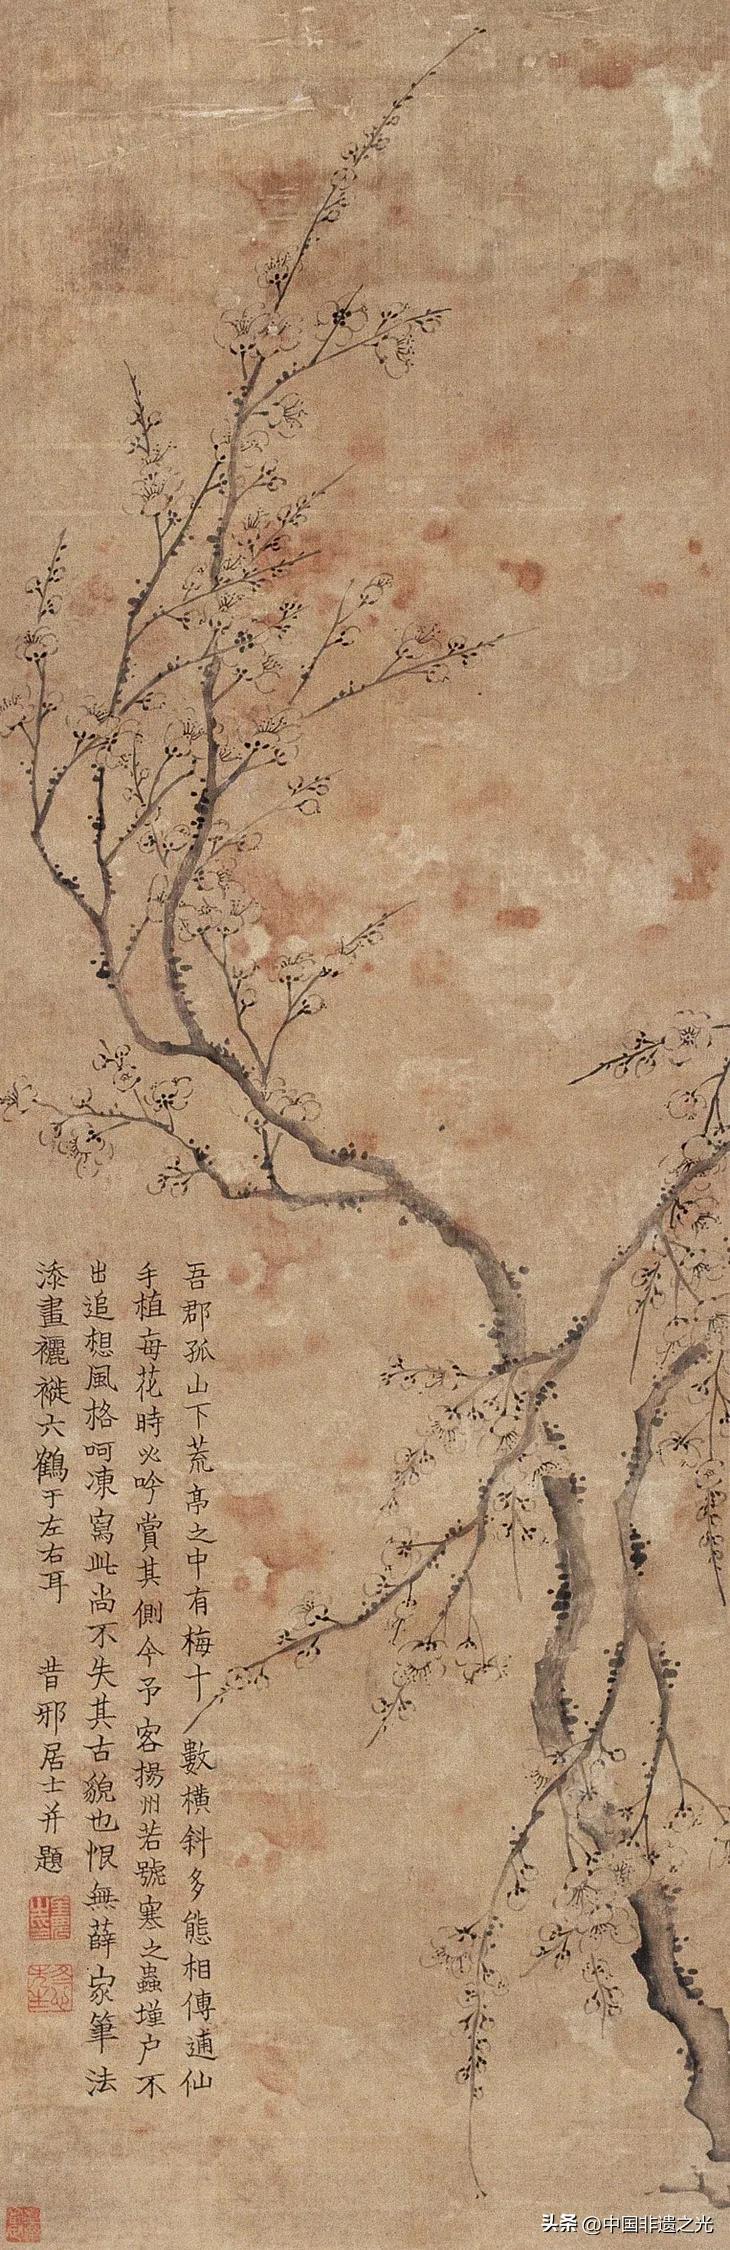 吾郡孤山下荒亭之中有梅十數橫斜多態相傳逋仙
手植每花時必吟賞其側今予客揚州若號寒之蟲墐户不
出追想風格呵凍寫此尚不失其古貌也恨無薛家筆法
添畫褵褷六鶴于左右耳 昔邪居士并題
头条 @中国非遗之光